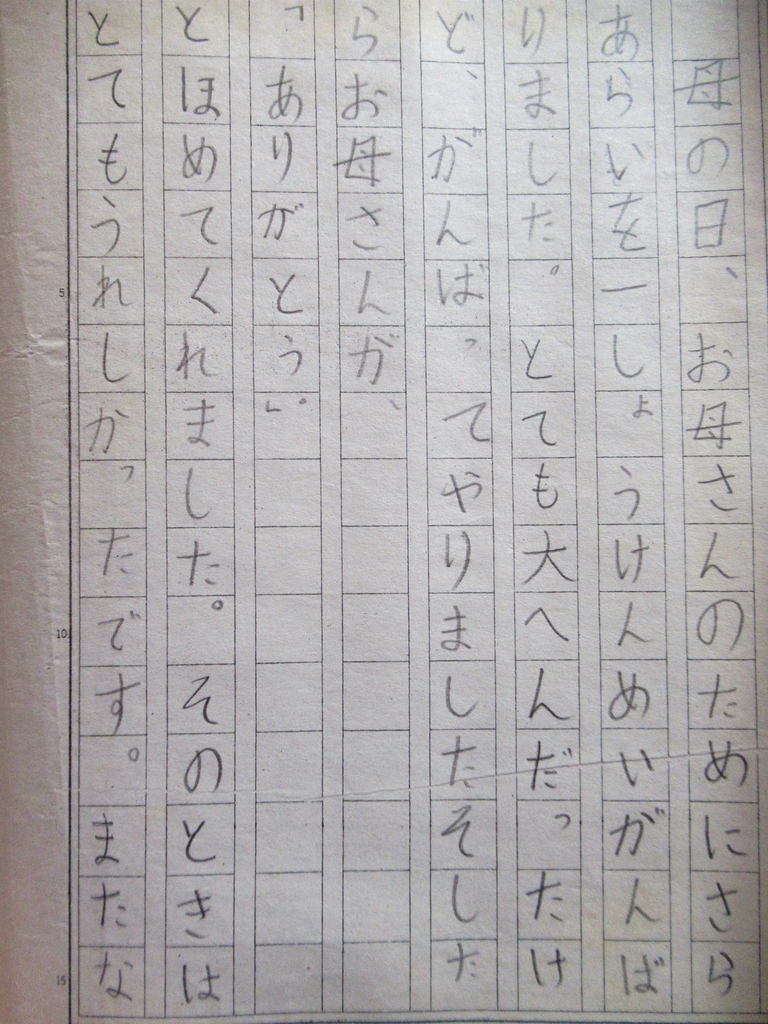 母の日、お母さんのためにさら
あらいを一しょうけんめいがんば
りました。とても大へんだったけ
ど、がんばってやりましたそした
らお母さんが、
「ありがとう」。
とほめてくれました。そのときは
とてもうれしかったです。またな
5
10
15